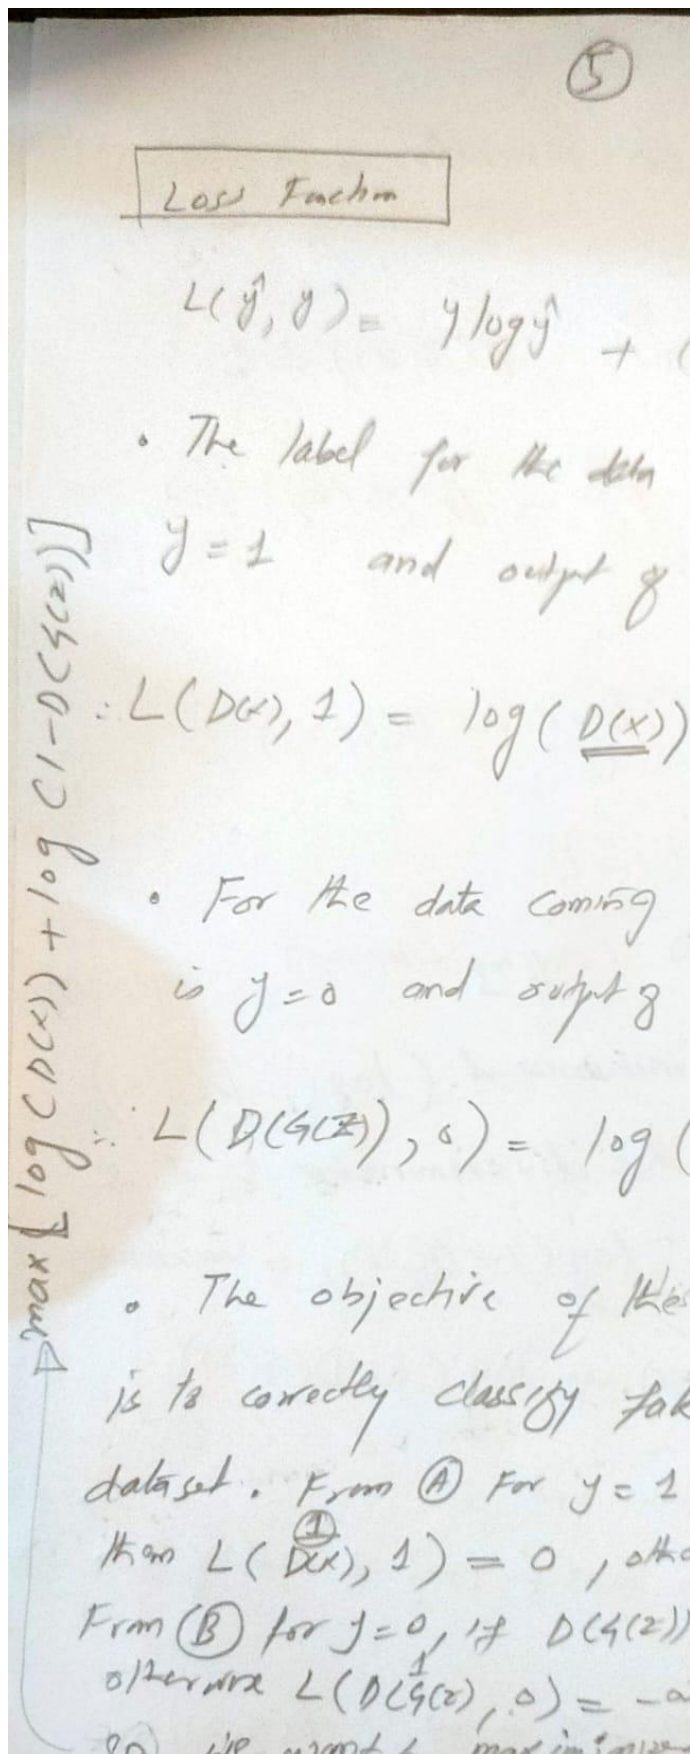 5
Loss Function
L(ŷ, y) = y log ŷ + (
• The label for the data
y = 1 and output of
∴ L(D(x), 1) = log(D(x))
• For the data coming
is y = 0 and output of
∴ L(D(G(z)), 0) = log(
• The objective of the
is to correctly classify fak
dataset. From Ⓐ For y = 1
then L(D(x), 1) = 0, othe
1
From Ⓑ for y = 0, if D(G(z))
otherwise L(D(G(z), 0) = -∞
1
so we want to maximize
max[log(D(x)) + log(1-D(G(z))]